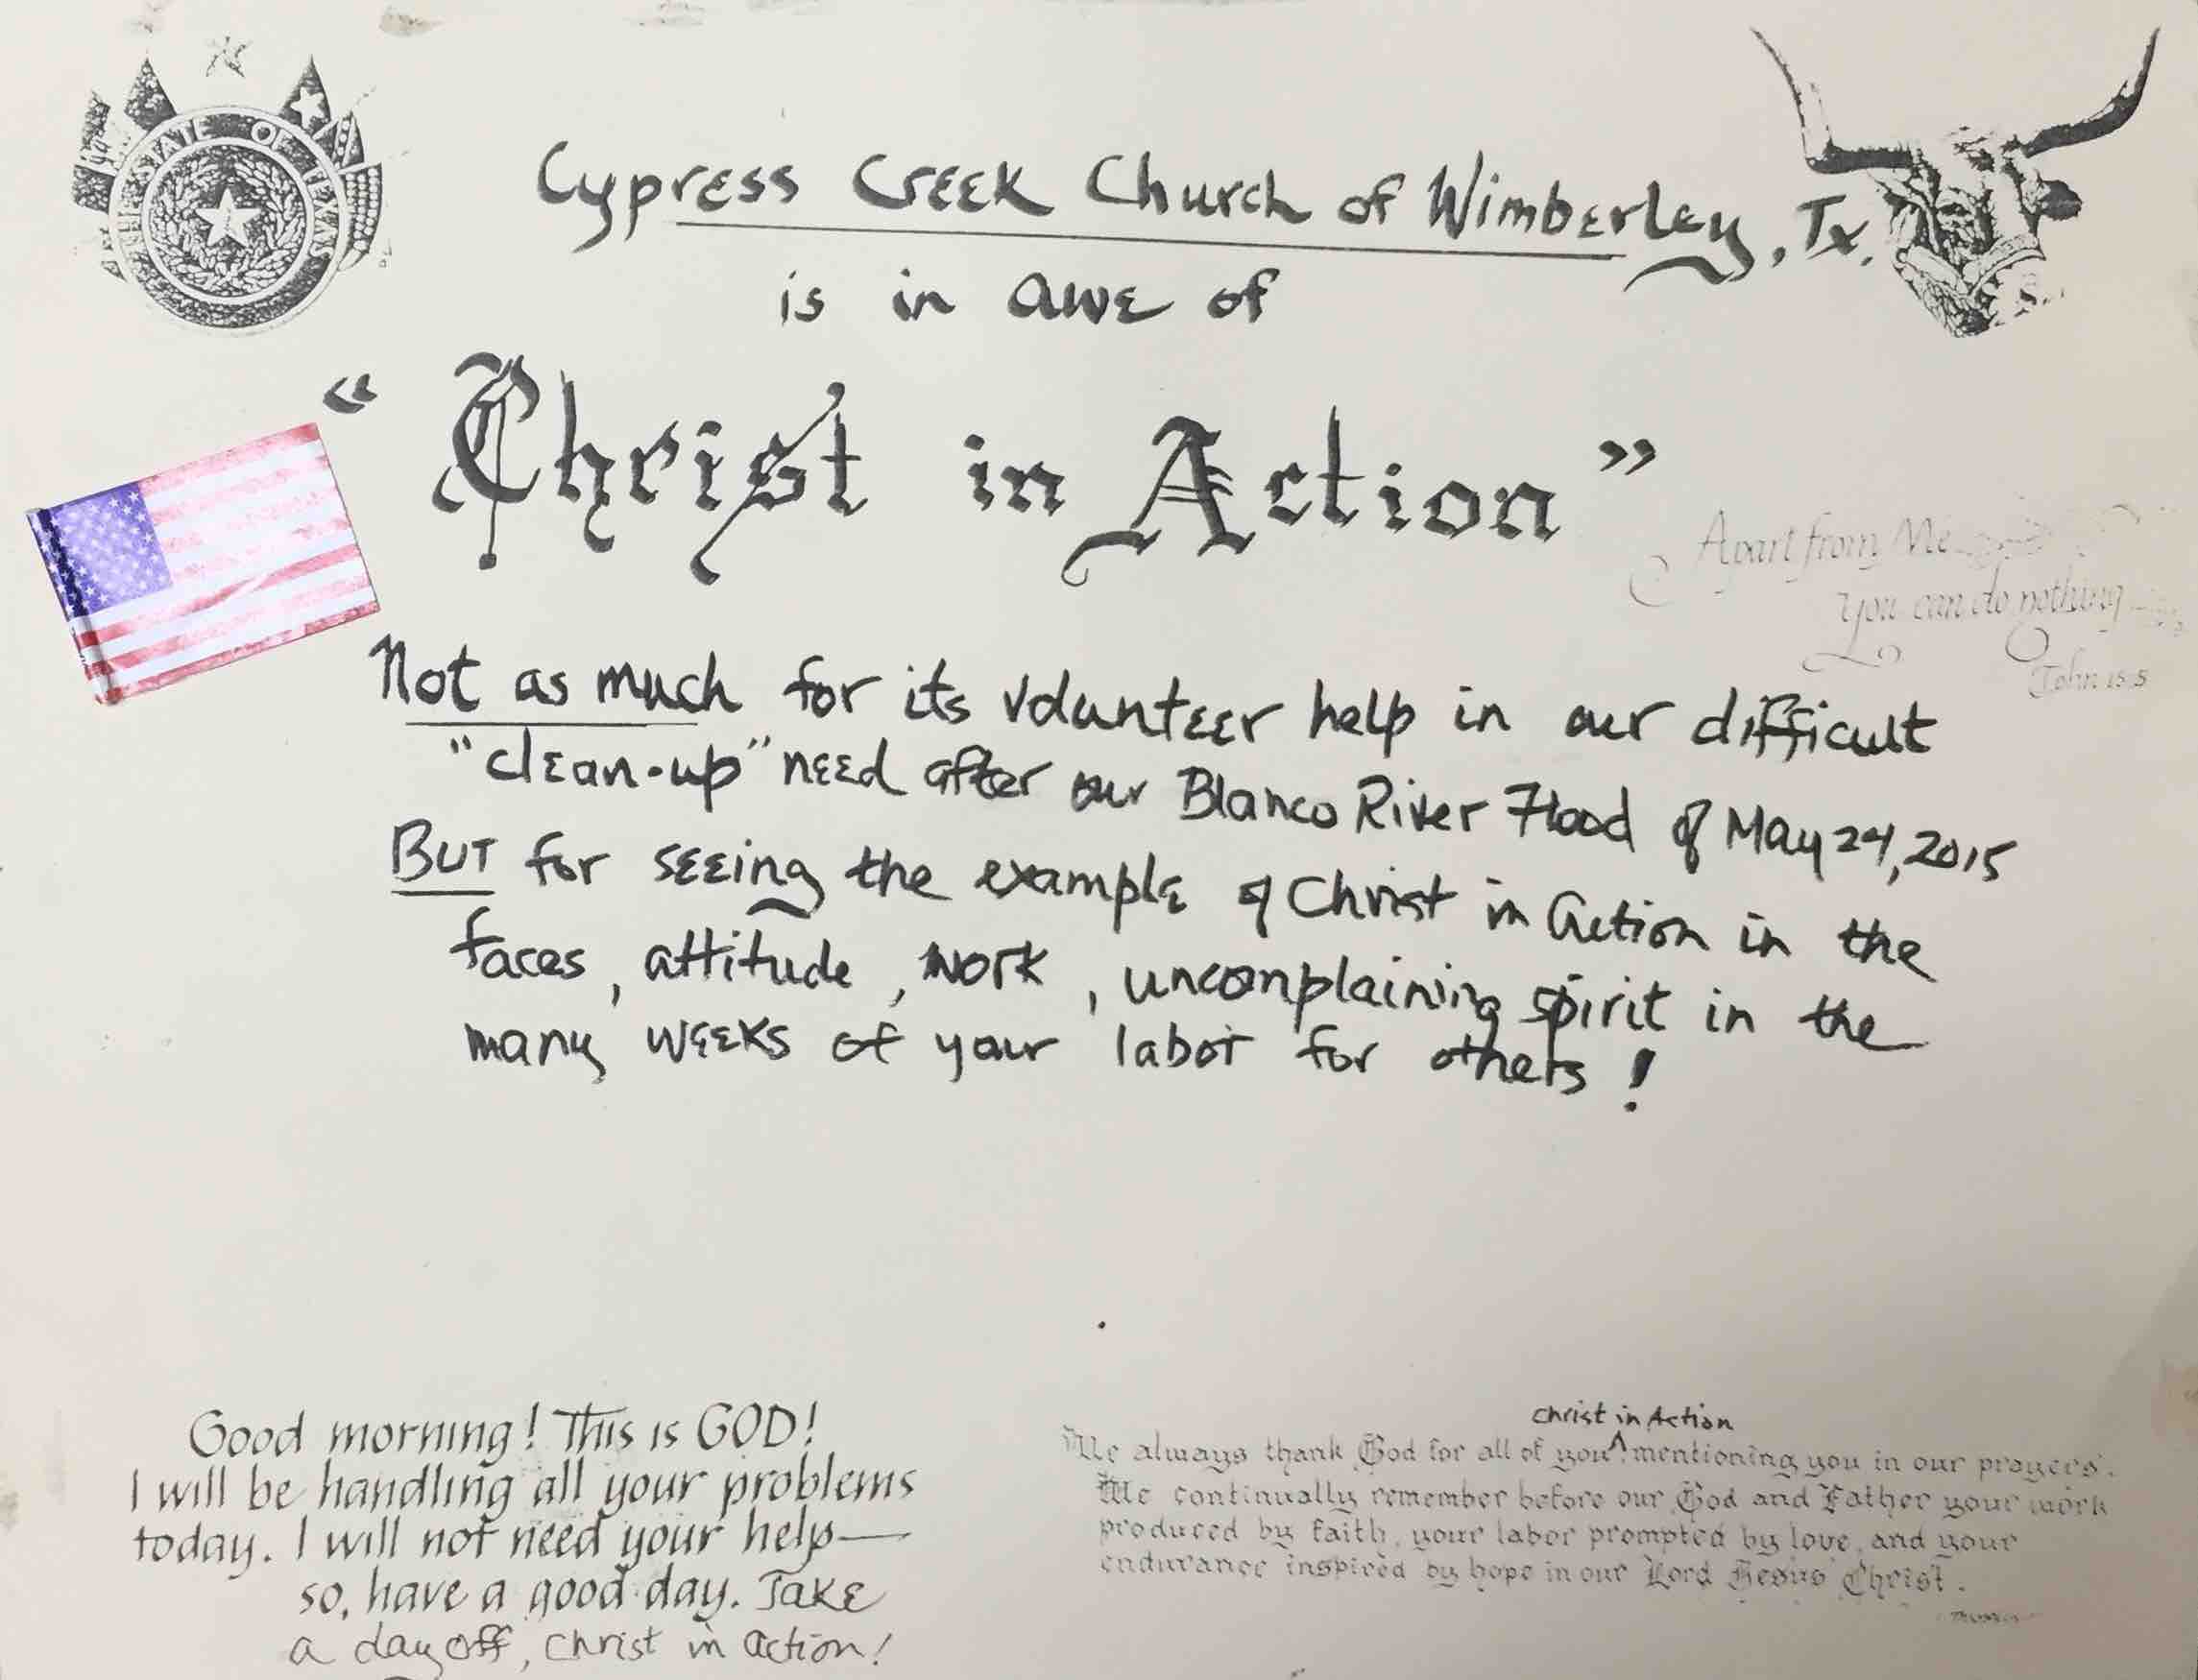 THE STATE OF TEXAS
Cypress Creek Church of Wimberley, Tx.
is in awe of
"Christ in Action"
Apart from Me
You can do nothing
John 15 5
Not as much for its volunteer help in our difficult
"clean-up" need after our Blanco River Flood of May 24, 2015
But for seeing the example of Christ in Action in the
faces, attitude, work, uncomplaining spirit in the
many weeks of your labor for others!
Good morning! This is GOD!
I will be handling all your problems
today. I will not need your help—
so, have a good day. Take
a day off, Christ in Action!
Christ in Action
We always thank God for all of you, mentioning you in our prayers.
We continually remember before our God and Father your work
produced by faith, your labor prompted by love, and your
endurance inspired by hope in our Lord Jesus Christ.